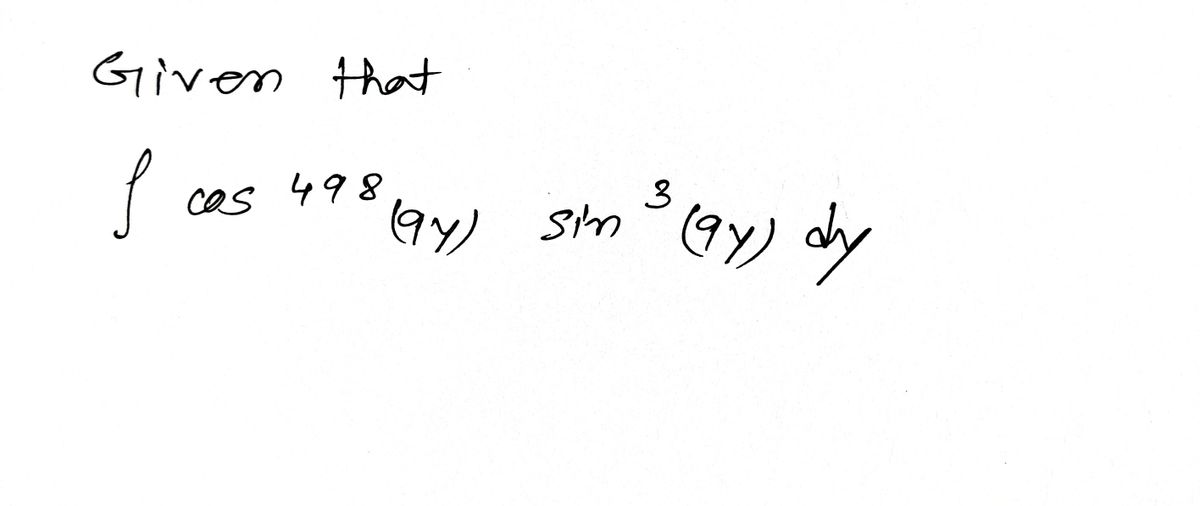 Given that
∫ cos 498 (9y) sin 3 (9y) dy